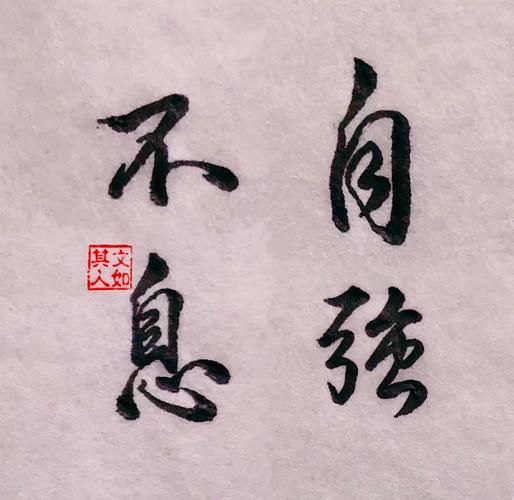 自強
不息
文如
其人